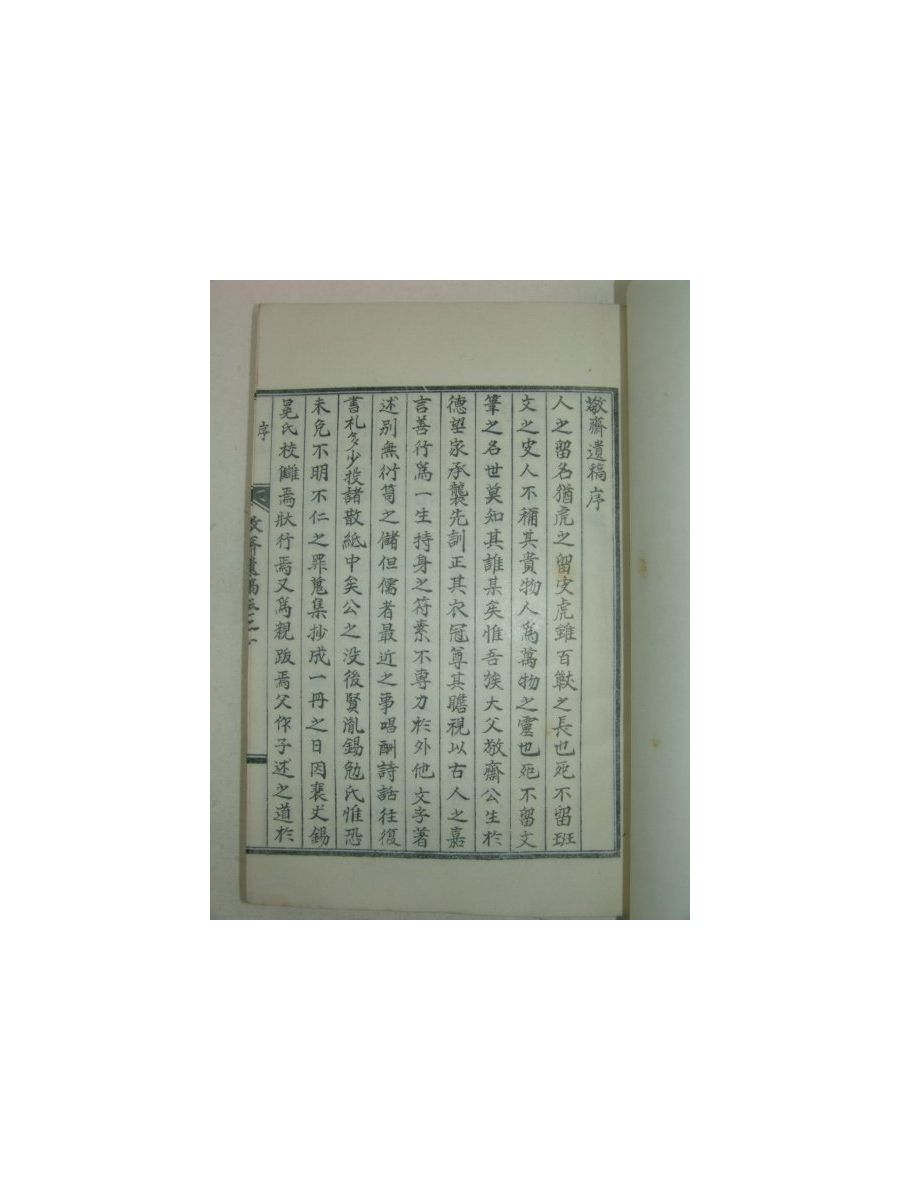 敬齋遺稿序
人之留名猶虎之留皮虎雖百獸之長也死不留斑
文之皮人不稱其貴物人爲萬物之靈也死不留文
筆之名世莫知其誰某矣惟吾族大父敬齋公生於
德望家承襲先訓正其衣冠尊其瞻視以古人之嘉
言善行爲一生持身之符素不專力於外他文字著
述別無衍笥之儲但儒者最近之事唱酬詩話往復
書札多少投諸散紙中矣公之沒後賢胤錫勉氏惟恐
未免不明不仁之罪蒐集抄成一冊之日因裵丈錫
晃氏校讎焉狀行焉又爲親跋焉父作子述之道於
序
敬齋遺稿